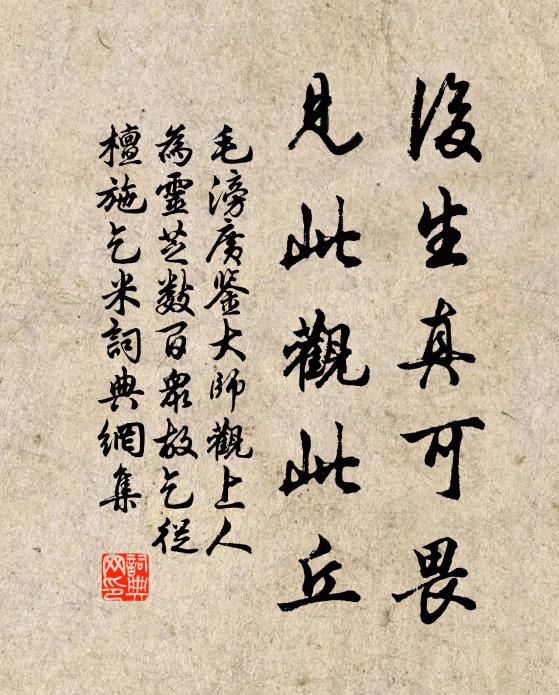 後生真可畏
見此觀此丘
毛滂廣鉴大師觀上人
為靈芝数百眾故乞從
檀施乞米詞典網集
詞典网印